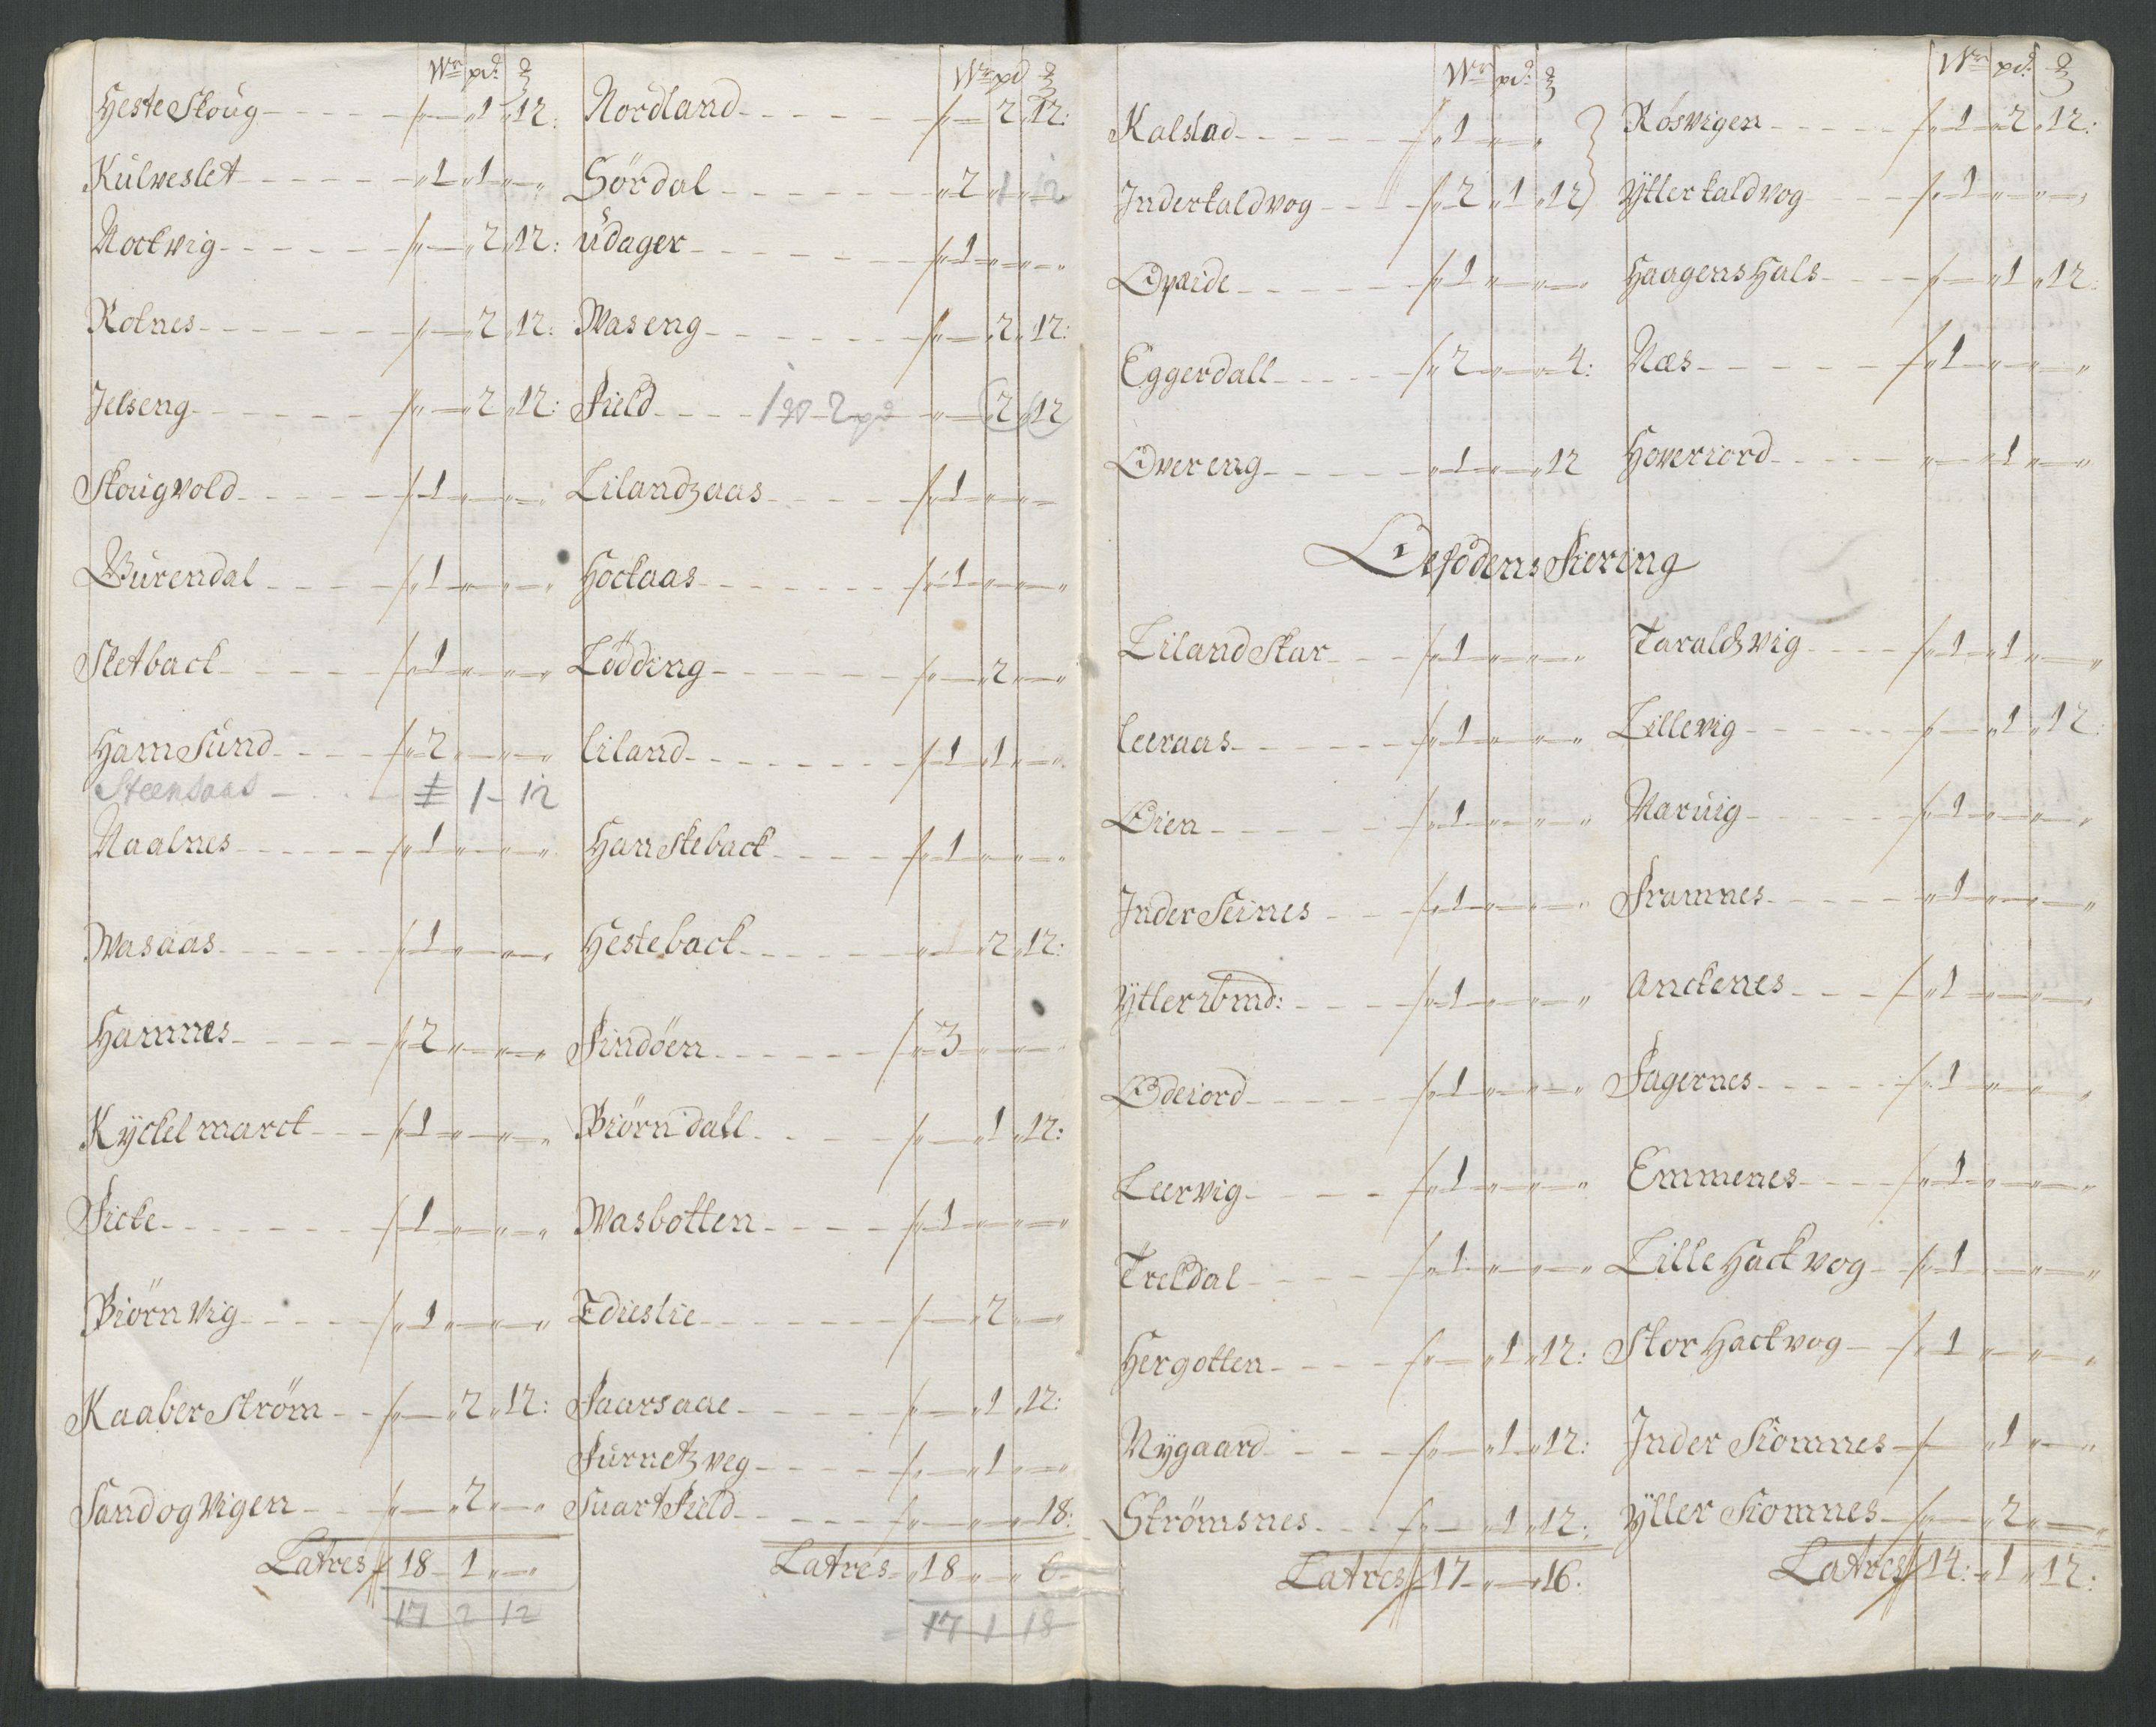 Wr pd: ȝ
HesteSkoug - - - - - „ - „ 1 „ 12:
Kulveslet - - - - - „ 1 „ 1 „ - „
Nockvig - - - - - „ - „ 2 „ 12:
Rotnes - - - - - „ - „ 2 „ 12:
Jelseng - - - - - „ - „ 2 „ 12:
Skougvold - - - - - „ 1 „ - „ - „
Burendal - - - - - „ 1 „ - „ - „
Sletback - - - - - „ 1 „ - „ - „
HamSund - - - - - „ 2 „ - „ - „
Steensaas - - 1 - 12
Naalnes - - - - - „ 1 „ - „ - „
Wasaas - - - - - „ 1 „ - „ - „
Hamnes - - - - - „ 2 „ - „ - „
Kyckelmarck - - „ 1 „ - „ - „
Ficke - - - - - „ 1 „ - „ - „
Biörnvig - - - - - „ 1 „ - „ - „
KaaberStröm - - „ - „ 2 „ 12:
Sandogvigen - - „ - „ 2 „ - „
Latres 18 - 1 „ - „
17 2 12
Wr pd ȝ
Nordland - - - - - „ - 2 „ 12:
Sördal - - - - - „ 2 1 12
Udager - - - - - „ 1 „ - „ - „
Waseng - - - - - „ - „ 2 „ 12:
Field - - - 1 W 2 pd „ - 2 „ 12
Lilandzaas - - - - „ 1 „ - „ - „
Hockaas - - - - - „ 1 „ - „ - „
Lödding - - - - - „ - „ 2 „ - „
Liland - - - - - „ 1 „ 1 „ - „
Hanskeback - - - - „ 1 „ - „ - „
Hesteback - - - - „ - „ 2 „ 12:
Findöen - - - - - „ 3 „ - „ - „
Biörndall - - - - „ - „ 1 „ 12:
Wasbotten - - - - „ 1 „ - „ - „
Edieslie - - - - - „ - „ 2 „ - „
Saarsaae - - - - - „ - „ 1 „ 12:
Furnetzveg - - - - „ - „ 1 „ - „
SuartField - - - - „ - „ - „ 18:
Latres „ 18 „ - „ 6
17 1 18
Wr pd: ȝ
Kalstad - - - - - „ 1 „ - „
Jnderkaldvog - - „ 2 „ 1 „ 12
Qvaide - - - - - „ 1 „ - „ - „
Eggerdall - - - - „ 2 „ - „ 4:
Overeng - - - - - „ 1 „ - „ 12
Wr pd: ȝ
Rösvigen - - - - - „ 1 „ 2 „ 12:
Ytterkaldvog - - - „ 1 „ - „ - „
HaagensHals - - - „ - „ 1 „ 12:
Næs - - - - - „ 1 „ - „ - „
Hoveriord - - - - „ - „ 1 „ - „
Ofsodens Fiering
LilandSkar - - - „ 1 „ - „ - „
Leeraas - - - - - „ 1 „ - „ - „
Öien - - - - - „ 1 „ - „ - „
JnderSeines - - - „ 1 „ - „ - „
Ytter ibmd: - - - „ 1 „ - „ - „
Ödeiord - - - - - „ 1 „ - „ - „
Leervig - - - - - „ 1 „ - „ - „
Treldal - - - - - „ 1 „ - „ - „
Hergotten - - - - „ - „ 1 „ 12:
Nygaard - - - - - „ - „ 1 „ 12:
Strömsnes - - - - „ - „ 1 „ 12:
Latres 17 „ - „ 16:
Taraldzvig - - - - „ 1 „ 1 „ - „
Lillevig - - - - - „ - „ 1 „ 12:
Naruig - - - - - „ 1 „ - „ - „
Framnes - - - - - „ 1 „ - „ - „
Anckenes - - - - „ 1 „ - „ - „
Fagernes - - - - - „ 1 „ - „ - „
Emmenes - - - - „ 1 „ - „ - „
Lille Hackvog - - „ 1 „ - „ - „
Stor Hackvog - - „ 1 „ - „ - „
Jnder Siomnes - „ - „ 1 „ - „
Ytter Siomnes - „ - „ 2 „ - „
Latres 14: „ 1 „ 12: